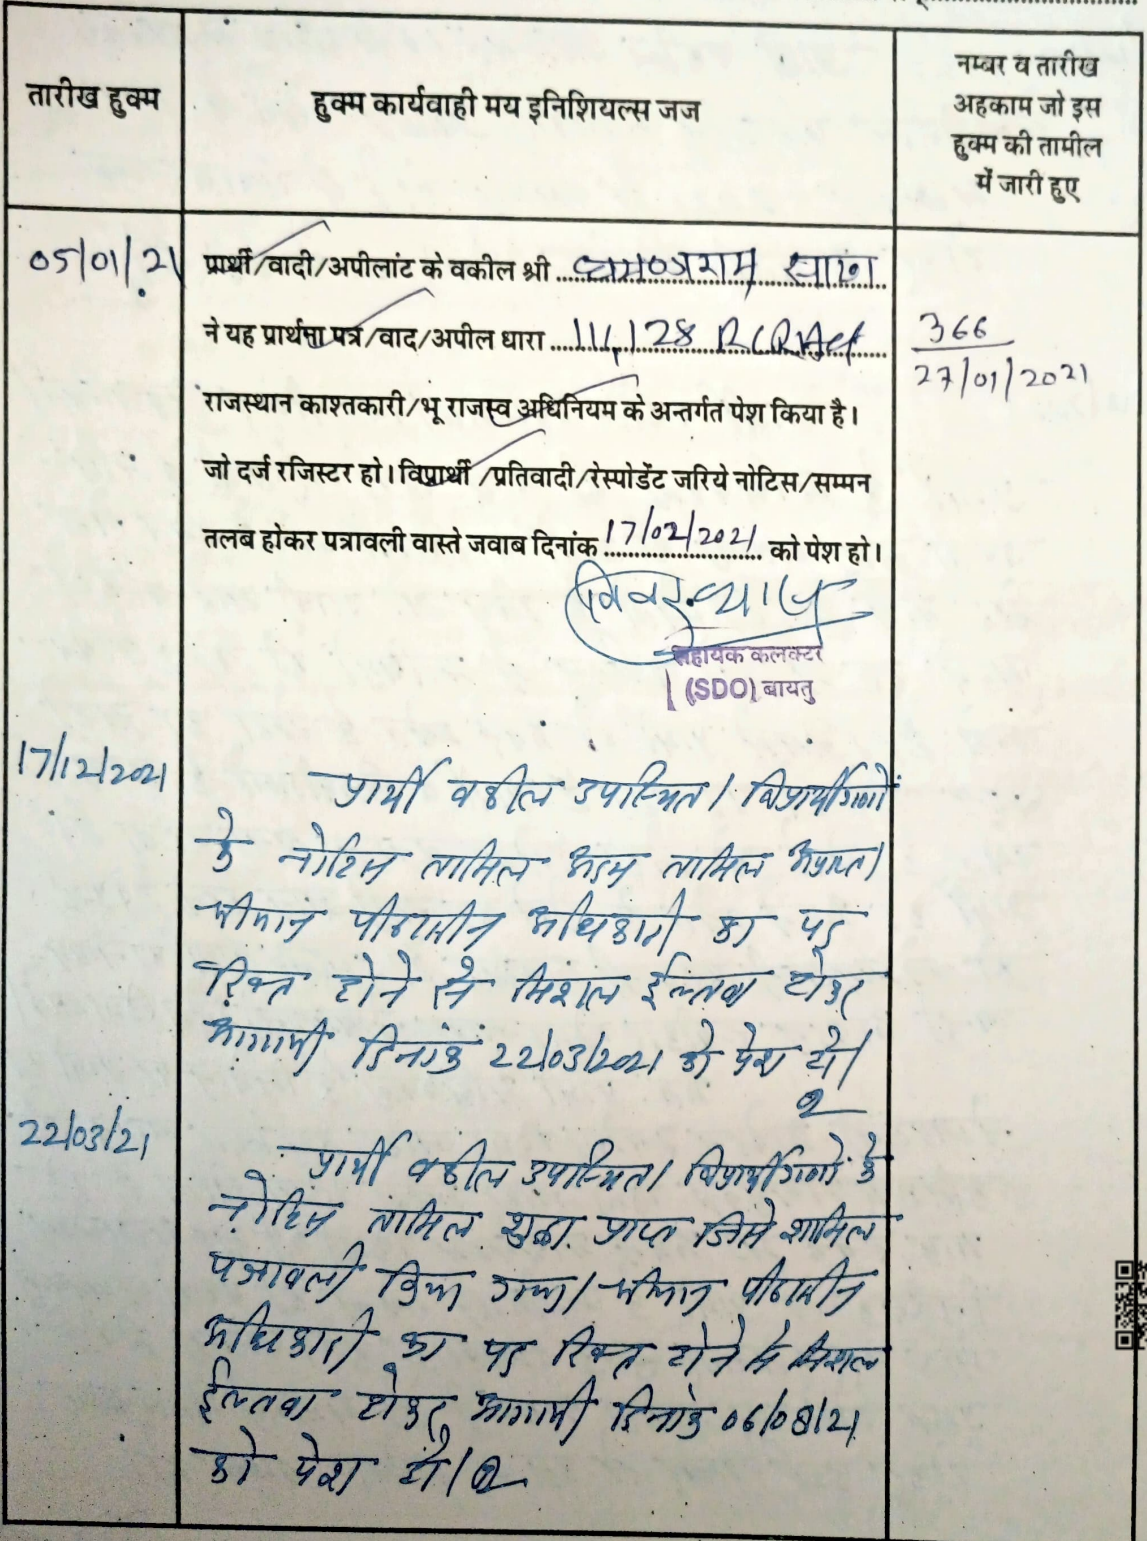 तारीख हुक्म
हुक्म कार्यवाही मय इनिशियल्स जज
नम्बर व तारीख
अहकाम जो इस
हुक्म की तामील
में जारी हुए
05/01/21
प्रार्थी/वादी/अपीलांट के वकील श्री
ने यह प्रार्थना पत्र/वाद/अपील धारा 111, 128 RLRAct
राजस्थान काश्तकारी/भू राजस्व अधिनियम के अन्तर्गत पेश किया है।
जो दर्ज रजिस्टर हो। विप्रार्थी/प्रतिवादी/रेस्पोडेंट जरिये नोटिस/सम्मन
तलब होकर पत्रावली वास्ते जवाब दिनांक 17/02/2021 को पेश हो।
366
27/01/2021
सहायक कलक्टर
(SDO) बायतु
17/12/2021
प्रार्थी वकील उपस्थित। विप्रार्थीगणों
के नोटिस तामिल अदम तामिल अप्राप्त।
श्रीमान पीठासीन अधिकारी का पद
रिक्त होने से मिशल ईल्तवा होकर
आगामी दिनांक 22/03/2021 को पेश हो।
22/03/21
प्रार्थी वकील उपस्थित। विप्रार्थीगणों के
नोटिस तामिल शुदा प्राप्त जिसे शामिल
पत्रावली किया गया। श्रीमान पीठासीन
अधिकारी का पद रिक्त होने से मिशल
ईल्तवा होकर आगामी दिनांक 06/08/21
को पेश हो।